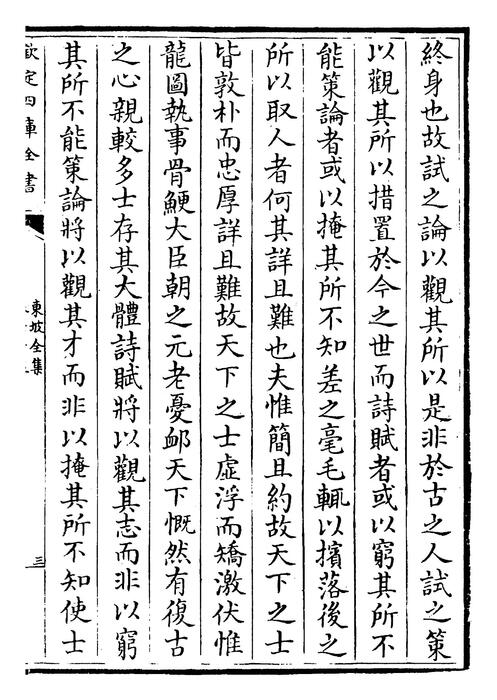 終身也故試之論以觀其所以是非於古之人試之策
以觀其所以措置於今之世而詩賦者或以窮其所不
能策論者或以掩其所不知差之毫毛輒以擯落後之
所以取人者何其詳且難也夫惟簡且約故天下之士
皆敦朴而忠厚詳且難故天下之士虛浮而矯激伏惟
龍圖執事骨鯁大臣朝之元老憂䘏天下慨然有復古
之心親較多士存其大體詩賦將以觀其志而非以窮
其所不能策論將以觀其才而非以掩其所不知使士
欽定四庫全書
東坡全集
三